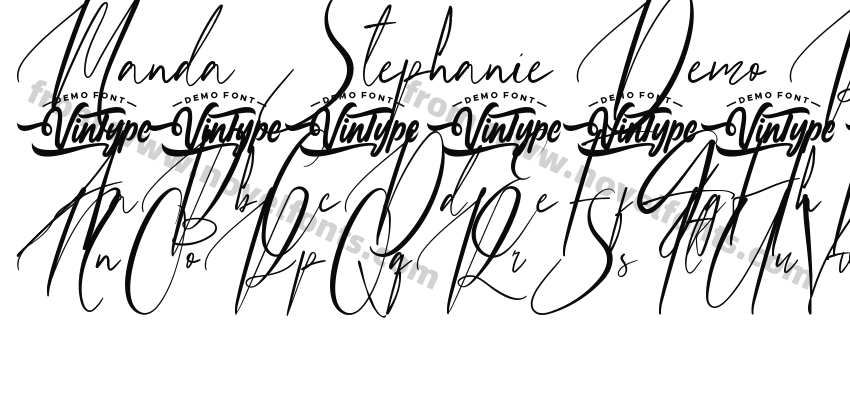 Manda Stephanie Demo
DEMO FONT Vintype DEMO FONT Vintype DEMO FONT Vintype DEMO FONT Vintype DEMO FONT Vintype DEMO FONT Vintype
Aa Bb Cc Dd Ee Ff Gg Hh
Nn Oo Pp Qq Rr Ss Tt Uu
from www.novelfonts.com from www.novelfonts.com